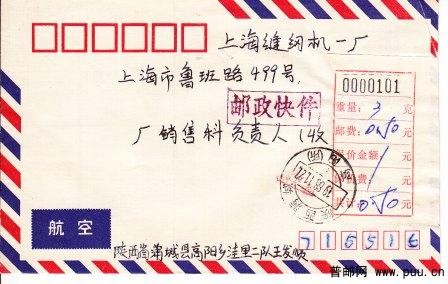 上海缝纫机一厂
上海市鲁班路499号
邮政快件
厂销售科负责人 收
0000101
重量: 3 克
邮费: 0.50 元
保价金额 元
元
共计: 0.50 元
航空
陕西省蒲城县高阳乡洼里一队王发顺
715516
普邮网 www.puu.cn